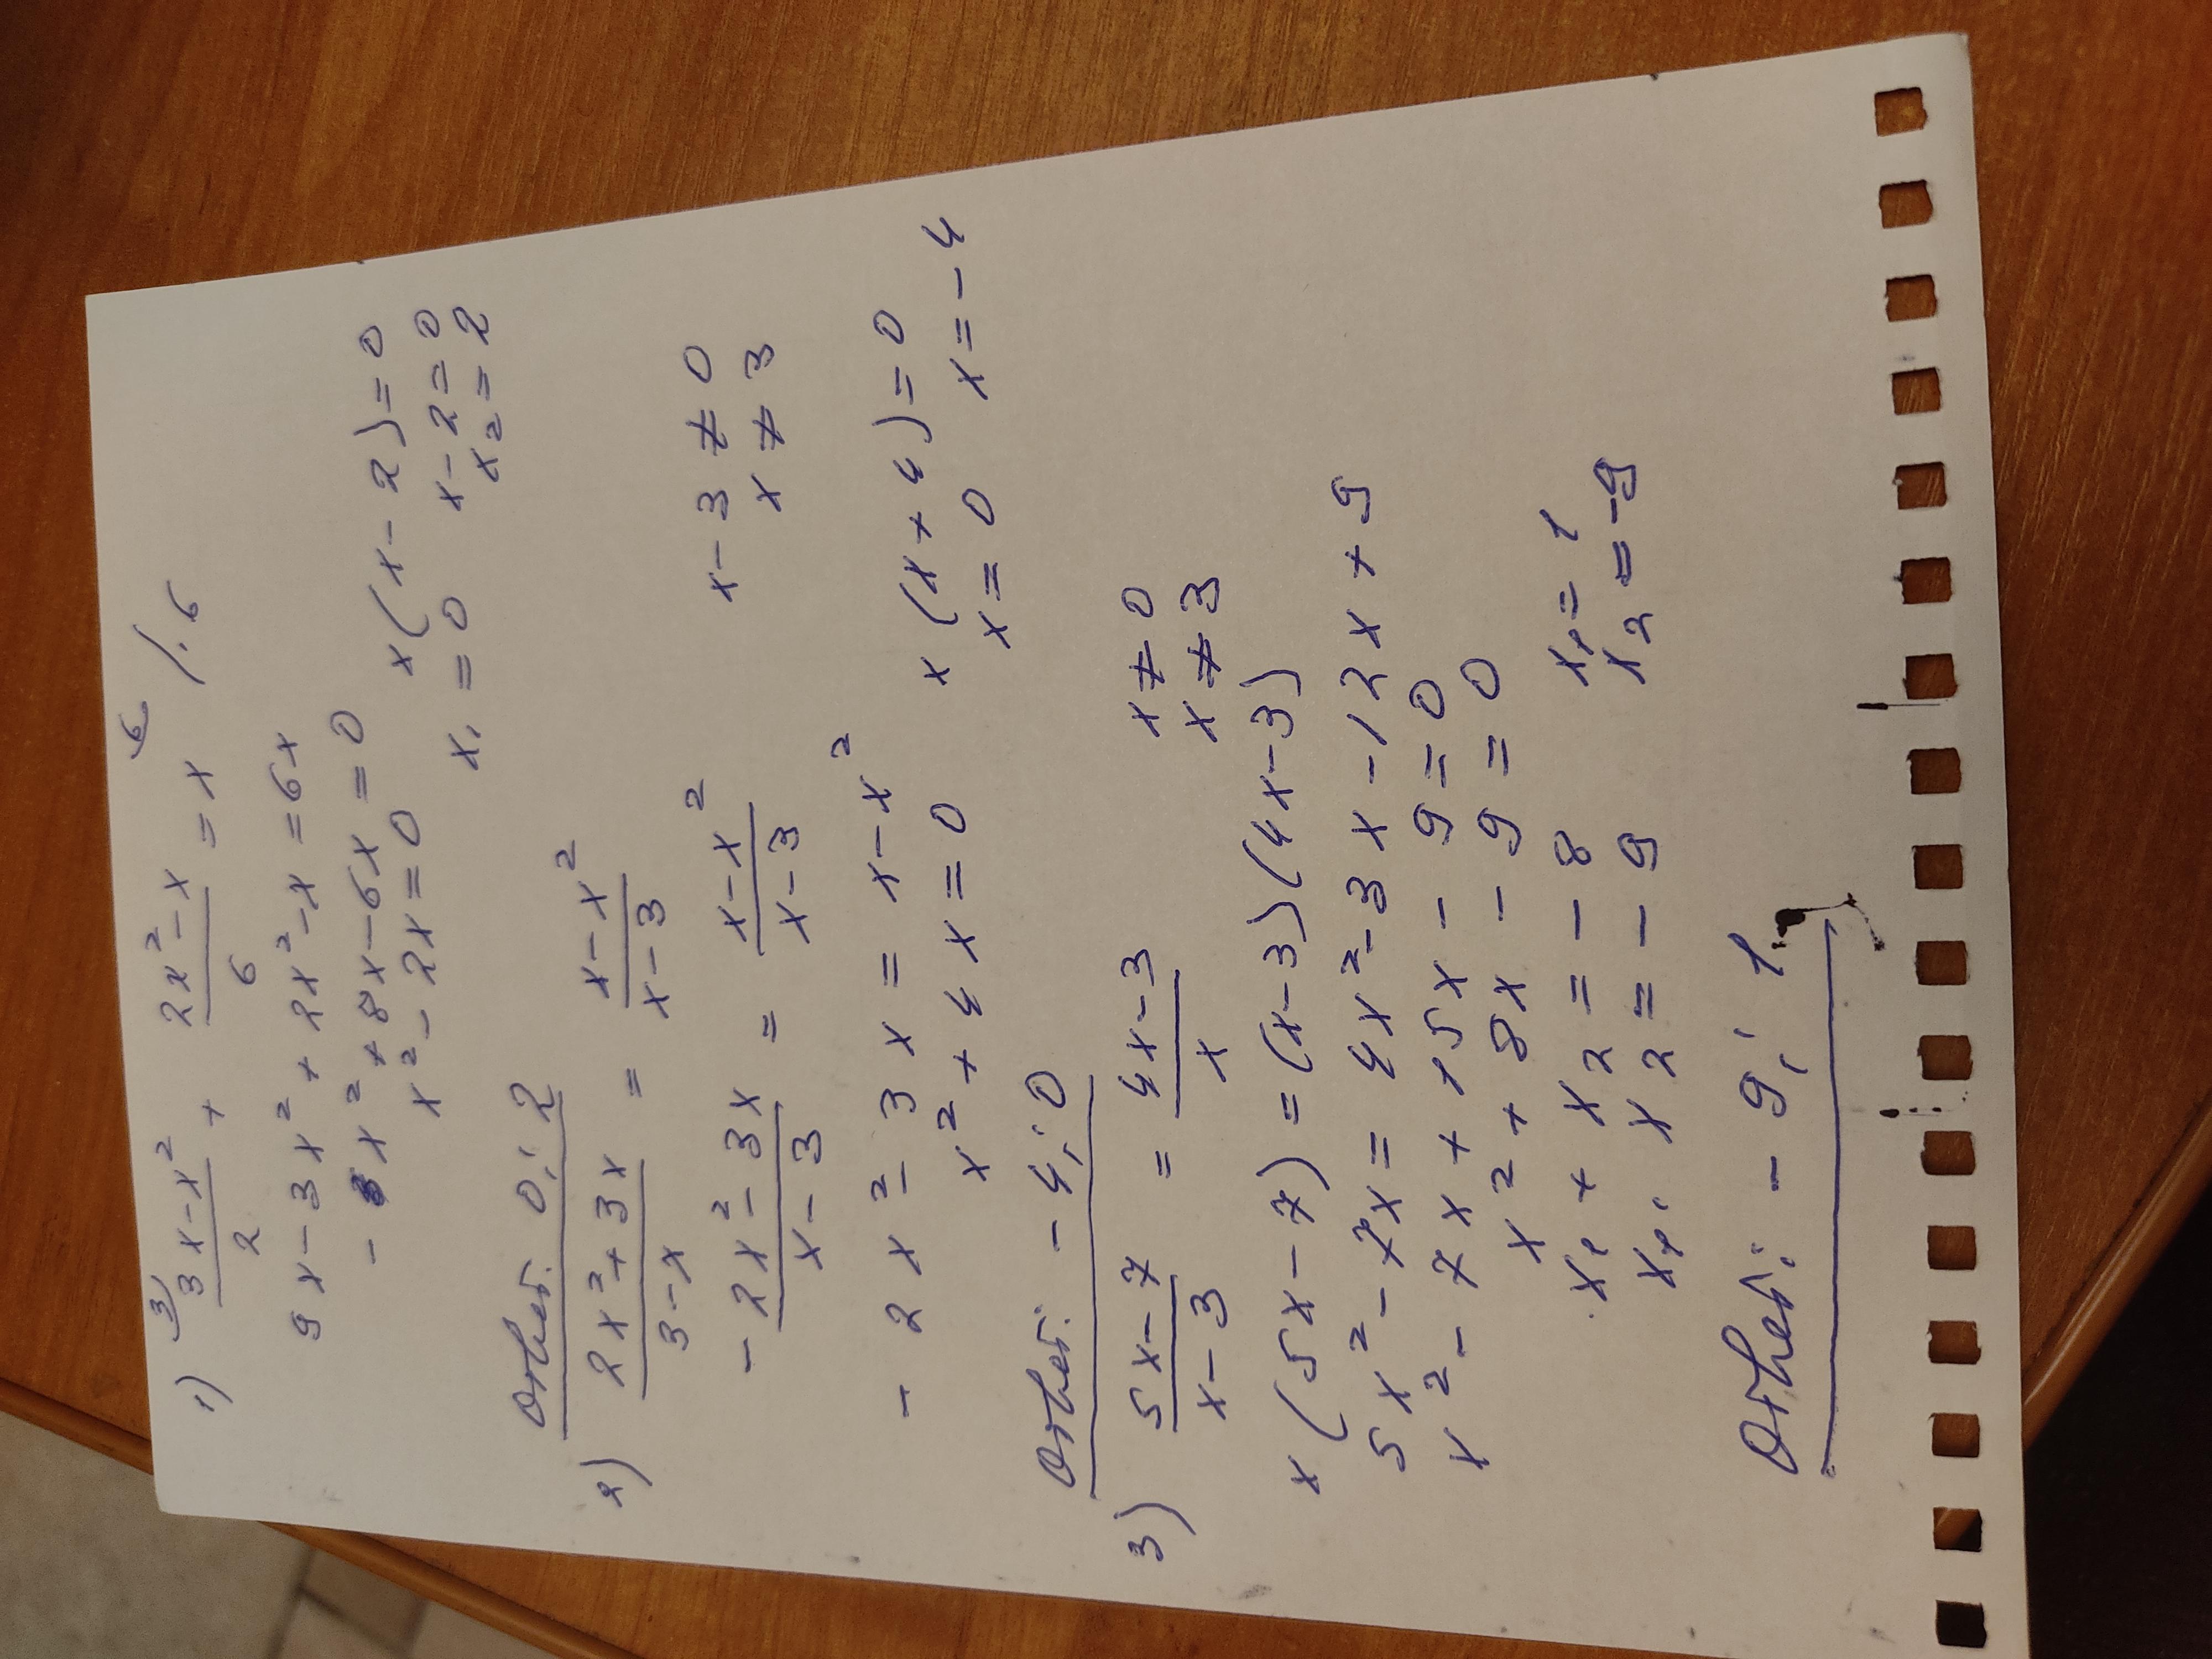 1) 3) (3x-x²)/2 + (2x²-x)/6 = x 6) /·6
9x-3x²+2x²-x=6x
-x²+8x-6x=0
x²-2x=0 x(x-2)=0
x₁=0 x-2=0
x₂=2
Ответ: 0; 2
2) (2x²+3x)/(3-x) = (x-x²)/(x-3)
x-3≠0
-(2x²-3x)/(x-3) = (x-x²)/(x-3) x≠3
-2x²-3x=x-x²
x²+4x=0 x(x+4)=0
x=0 x=-4
Ответ: -4; 0
3) (5x-7)/(x-3) = (4x-3)/x x≠0
x≠3
x(5x-7)=(x-3)(4x-3)
5x²-7x=4x²-3x-12x+9
x²-7x+15x-9=0
x²+8x-9=0
x₁+x₂=-8 x₁=1
x₁·x₂=-9 x₂=-9
Ответ: -9; 1.